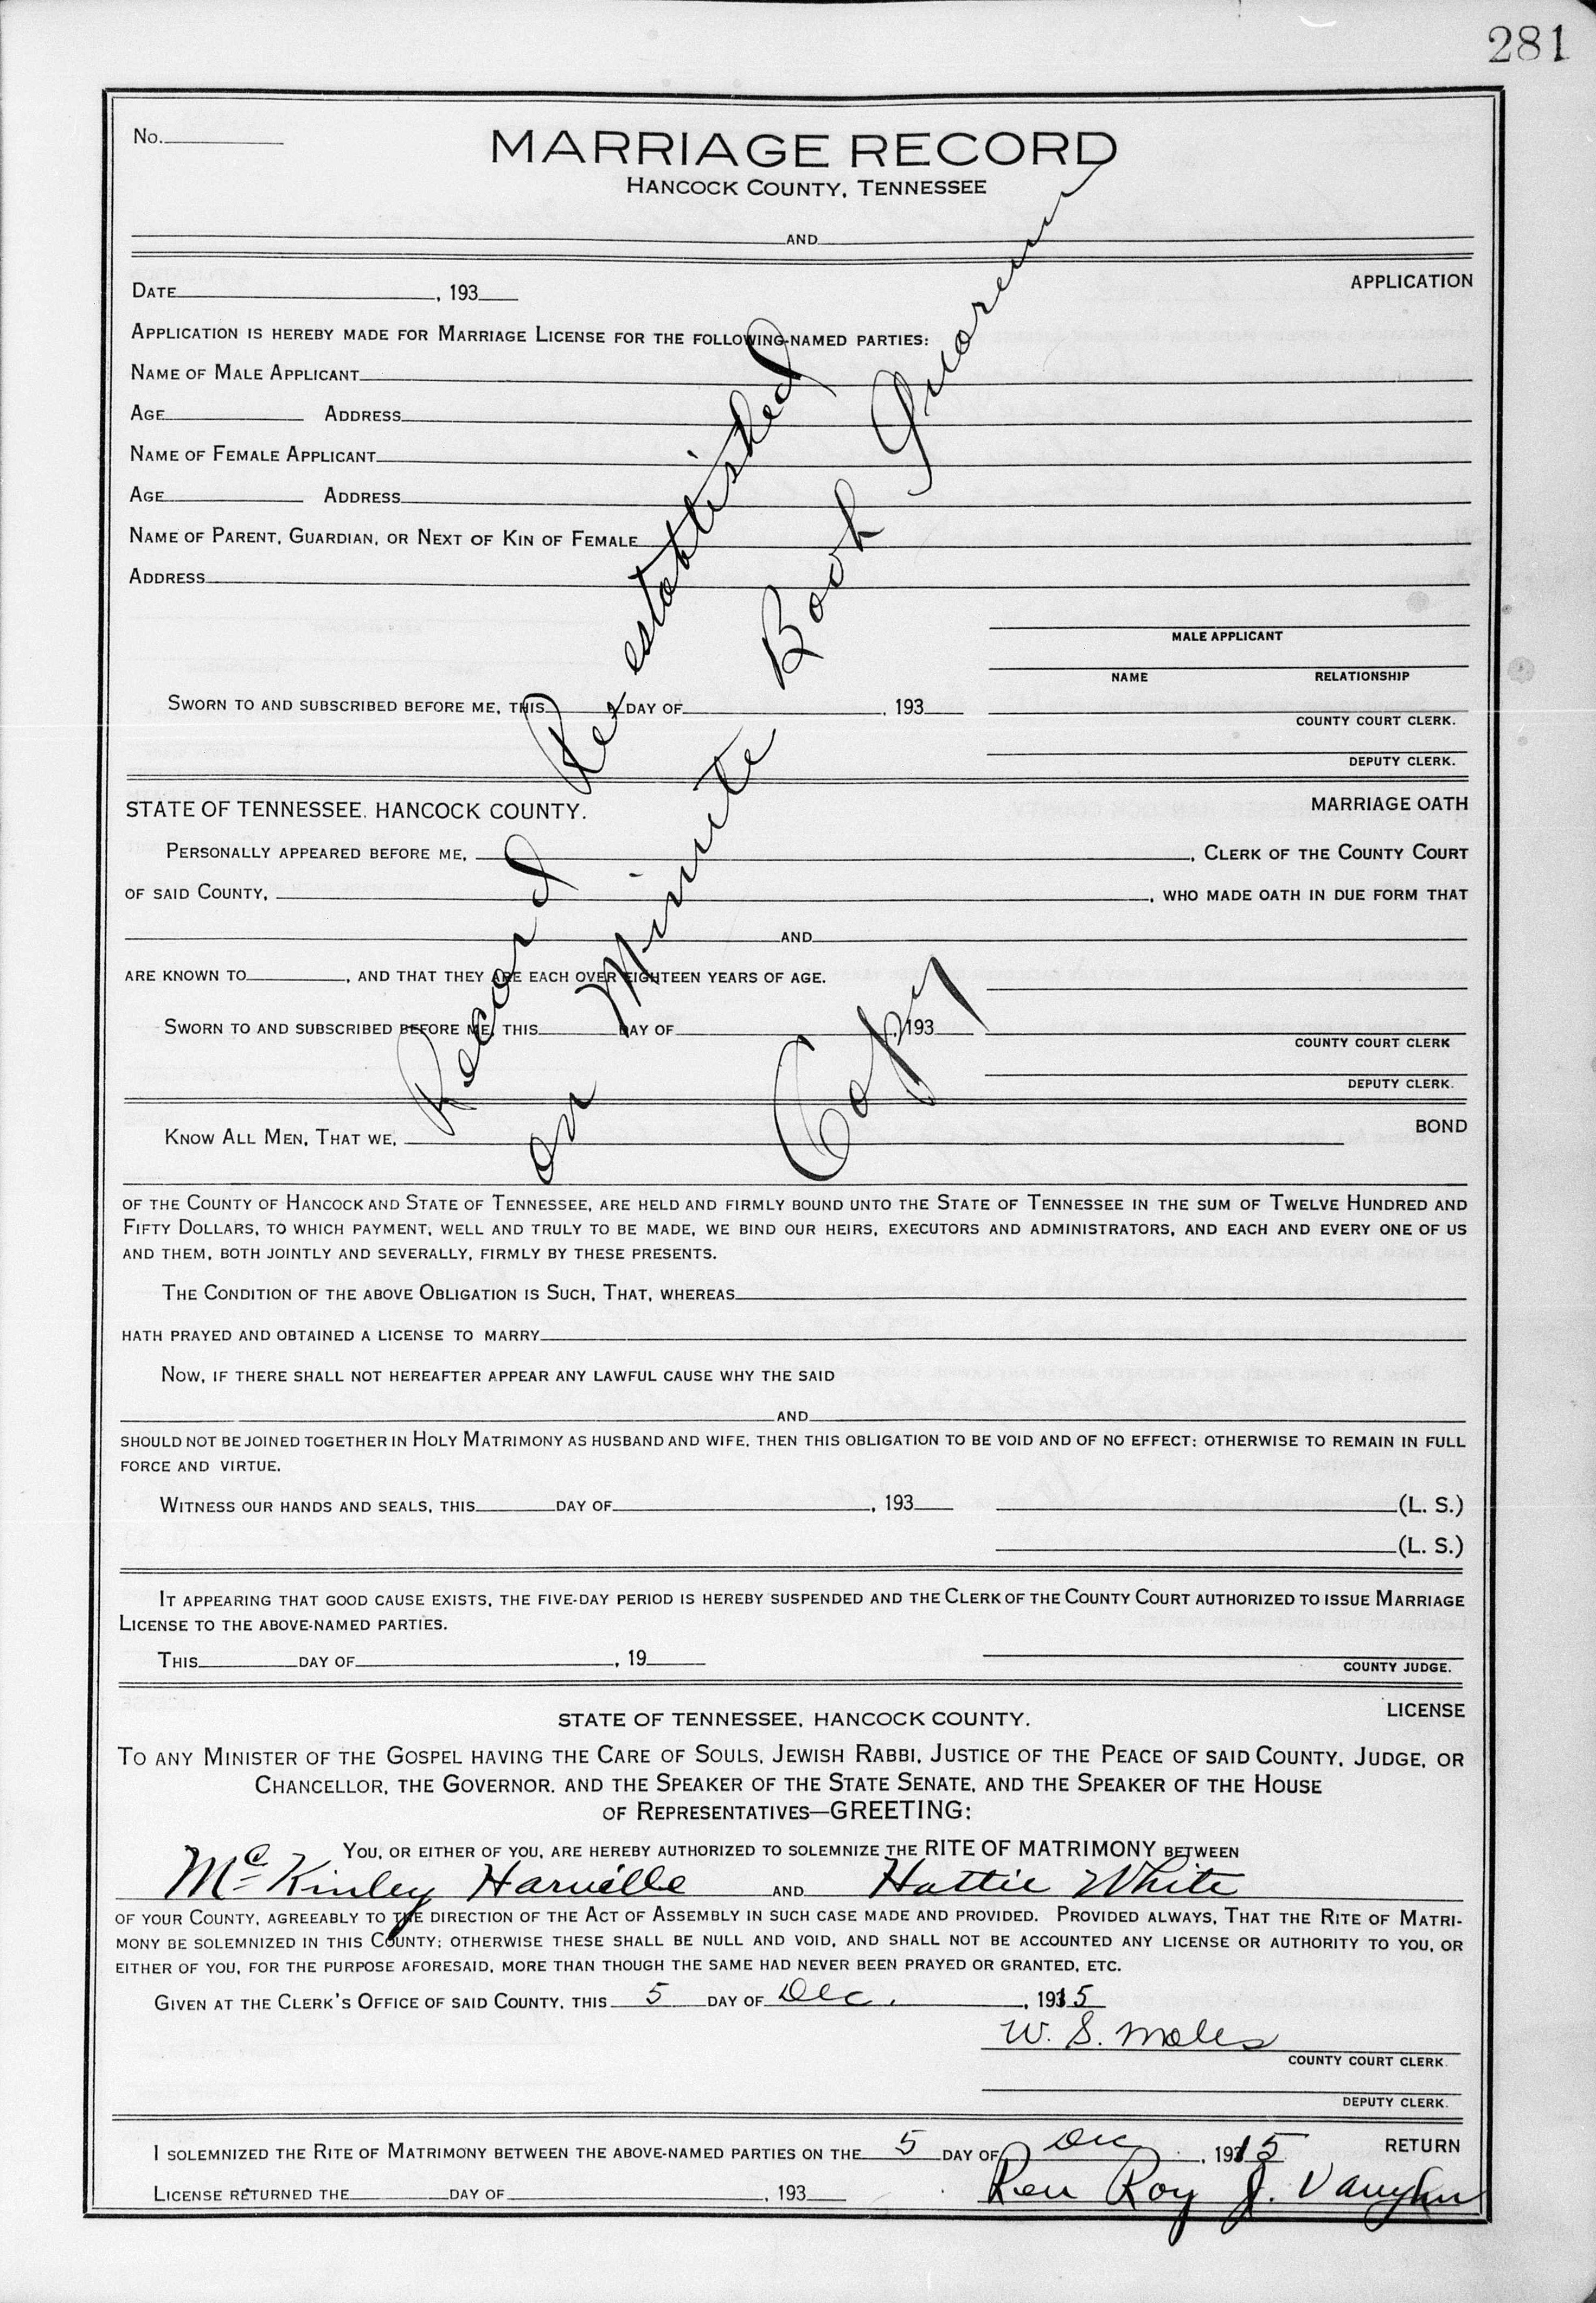 281
No.
MARRIAGE RECORD
HANCOCK COUNTY, TENNESSEE
AND
DATE , 193
APPLICATION
APPLICATION IS HEREBY MADE FOR MARRIAGE LICENSE FOR THE FOLLOWING-NAMED PARTIES:
NAME OF MALE APPLICANT
AGE ADDRESS
NAME OF FEMALE APPLICANT
AGE ADDRESS
NAME OF PARENT, GUARDIAN, OR NEXT OF KIN OF FEMALE
ADDRESS
MALE APPLICANT
NAME RELATIONSHIP
SWORN TO AND SUBSCRIBED BEFORE ME, THIS DAY OF , 193
COUNTY COURT CLERK.
DEPUTY CLERK.
Record Re established
on Minute Book
Copy
STATE OF TENNESSEE. HANCOCK COUNTY.
MARRIAGE OATH
PERSONALLY APPEARED BEFORE ME, , CLERK OF THE COUNTY COURT
OF SAID COUNTY, , WHO MADE OATH IN DUE FORM THAT
AND
ARE KNOWN TO , AND THAT THEY ARE EACH OVER EIGHTEEN YEARS OF AGE.
SWORN TO AND SUBSCRIBED BEFORE ME, THIS DAY OF , 193
COUNTY COURT CLERK
DEPUTY CLERK.
BOND
KNOW ALL MEN, THAT WE,
OF THE COUNTY OF HANCOCK AND STATE OF TENNESSEE, ARE HELD AND FIRMLY BOUND UNTO THE STATE OF TENNESSEE IN THE SUM OF TWELVE HUNDRED AND
FIFTY DOLLARS, TO WHICH PAYMENT, WELL AND TRULY TO BE MADE, WE BIND OUR HEIRS, EXECUTORS AND ADMINISTRATORS, AND EACH AND EVERY ONE OF US
AND THEM, BOTH JOINTLY AND SEVERALLY, FIRMLY BY THESE PRESENTS.
THE CONDITION OF THE ABOVE OBLIGATION IS SUCH, THAT, WHEREAS
HATH PRAYED AND OBTAINED A LICENSE TO MARRY
NOW, IF THERE SHALL NOT HEREAFTER APPEAR ANY LAWFUL CAUSE WHY THE SAID
AND
SHOULD NOT BE JOINED TOGETHER IN HOLY MATRIMONY AS HUSBAND AND WIFE, THEN THIS OBLIGATION TO BE VOID AND OF NO EFFECT; OTHERWISE TO REMAIN IN FULL
FORCE AND VIRTUE.
WITNESS OUR HANDS AND SEALS, THIS DAY OF , 193 (L. S.)
(L. S.)
IT APPEARING THAT GOOD CAUSE EXISTS, THE FIVE-DAY PERIOD IS HEREBY SUSPENDED AND THE CLERK OF THE COUNTY COURT AUTHORIZED TO ISSUE MARRIAGE
LICENSE TO THE ABOVE-NAMED PARTIES.
THIS DAY OF , 19
COUNTY JUDGE.
LICENSE
STATE OF TENNESSEE, HANCOCK COUNTY.
TO ANY MINISTER OF THE GOSPEL HAVING THE CARE OF SOULS, JEWISH RABBI, JUSTICE OF THE PEACE OF SAID COUNTY, JUDGE, OR
CHANCELLOR, THE GOVERNOR. AND THE SPEAKER OF THE STATE SENATE, AND THE SPEAKER OF THE HOUSE
OF REPRESENTATIVES—GREETING:
YOU, OR EITHER OF YOU, ARE HEREBY AUTHORIZED TO SOLEMNIZE THE RITE OF MATRIMONY BETWEEN
McKinley Harville AND Hattie White
OF YOUR COUNTY, AGREEABLY TO THE DIRECTION OF THE ACT OF ASSEMBLY IN SUCH CASE MADE AND PROVIDED. PROVIDED ALWAYS, THAT THE RITE OF MATRI-
MONY BE SOLEMNIZED IN THIS COUNTY; OTHERWISE THESE SHALL BE NULL AND VOID, AND SHALL NOT BE ACCOUNTED ANY LICENSE OR AUTHORITY TO YOU, OR
EITHER OF YOU, FOR THE PURPOSE AFORESAID, MORE THAN THOUGH THE SAME HAD NEVER BEEN PRAYED OR GRANTED, ETC.
GIVEN AT THE CLERK'S OFFICE OF SAID COUNTY, THIS 5 DAY OF Dec. , 1915
W. S. Moles
COUNTY COURT CLERK.
DEPUTY CLERK.
I SOLEMNIZED THE RITE OF MATRIMONY BETWEEN THE ABOVE-NAMED PARTIES ON THE 5 DAY OF Dec , 1915
RETURN
LICENSE RETURNED THE DAY OF , 193
Rev Roy J. Vaughn